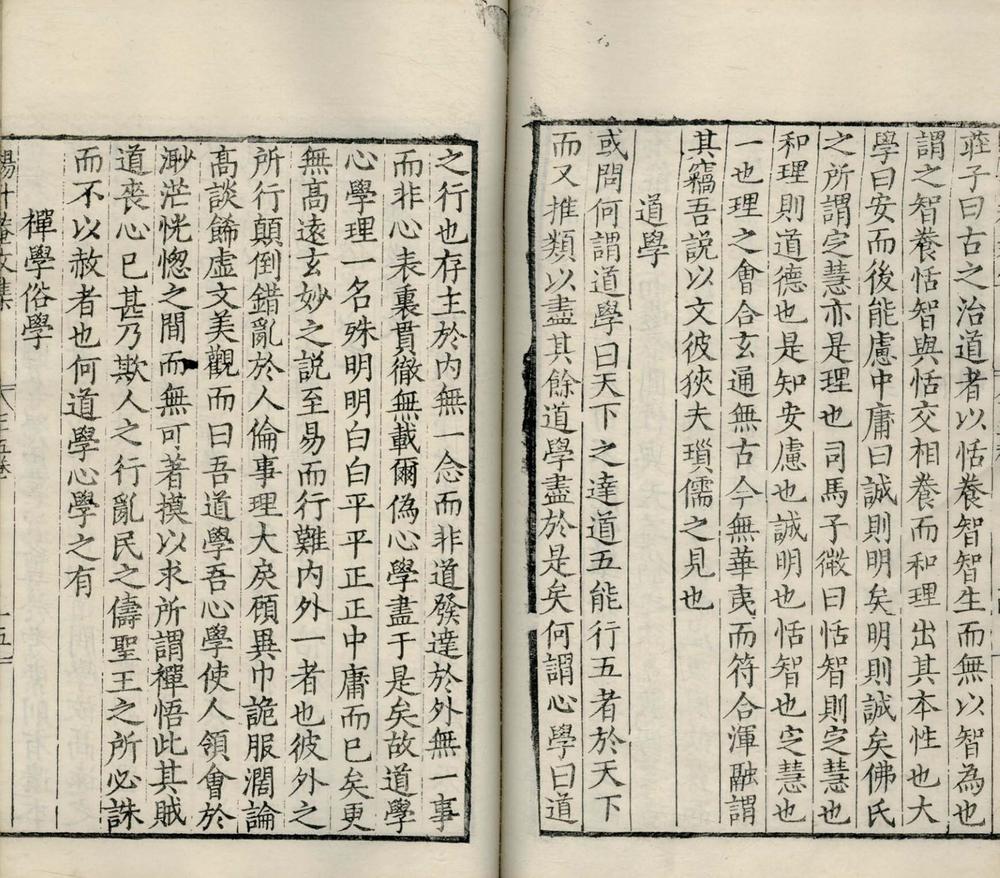 莊子曰古之治道者以恬養智智生而無以智為也
謂之智養恬智與恬交相養而和理出其本性也大
學曰安而後能慮中庸曰誠則明矣明則誠矣佛氏
之所謂定慧亦是理也司馬子微曰恬智則定慧也
和理則道德也是知安慮也誠明也恬智也定慧也
一也理之會合玄通無古今無華夷而符合渾融謂
其竊吾說以文彼狹夫瑣儒之見也
道學
或問何謂道學曰天下之達道五能行五者於天下
而又推類以盡其餘道學盡於是矣何謂心學曰道
之行也存主於內無一念而非道發達於外無一事
而非心表裏貫徹無載爾偽心學盡于是矣故道學
心學理一名殊明明白白平平正正中庸而已矣更
無高遠玄妙之說至易而行難內外一者也彼外之
所行顛倒錯亂於人倫事理大戾顧異巾詭服濶論
高談飾虛文美觀而曰吾道學吾心學使人領會於
渺茫恍惚之間而無可著摸以求所謂禪悟此其賊
道喪心已甚乃欺人之行亂民之儔聖王之所必誅
而不以赦者也何道學心學之有
禪學俗學